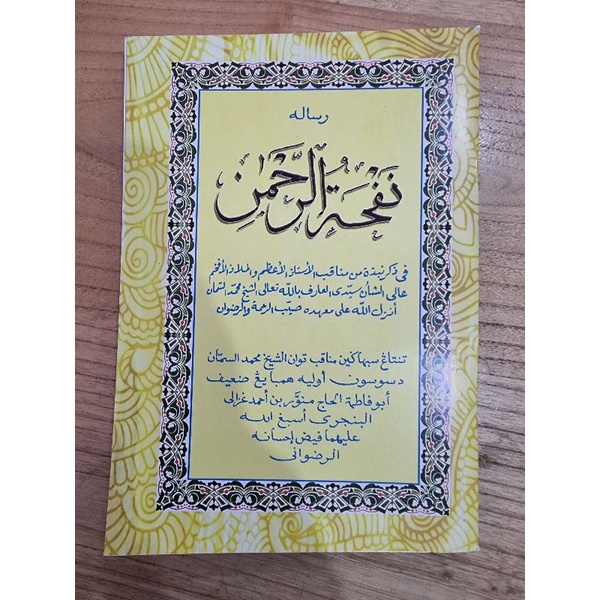 رساله
نفحة الرحمن
فى ذكر نبذة من مناقب الأستاذ الأعظم والملاذ الأفخم
عالى الشأن سيّدى العارف بالله تعالى الشيخ محمّد السّمان
أنزل الله على معهده صيّب الرحمة والرضوان
تنتاڠ سبهاڬين مناقب توان الشيخ محمد السمّان
دسوسون أوليه همبايڠ ضعيف
أبو فاطمة الحاج منوّر بن أحمد غزالى
البنجرى أسبغ الله
عليهما فيض إحسانه
الرضوانى